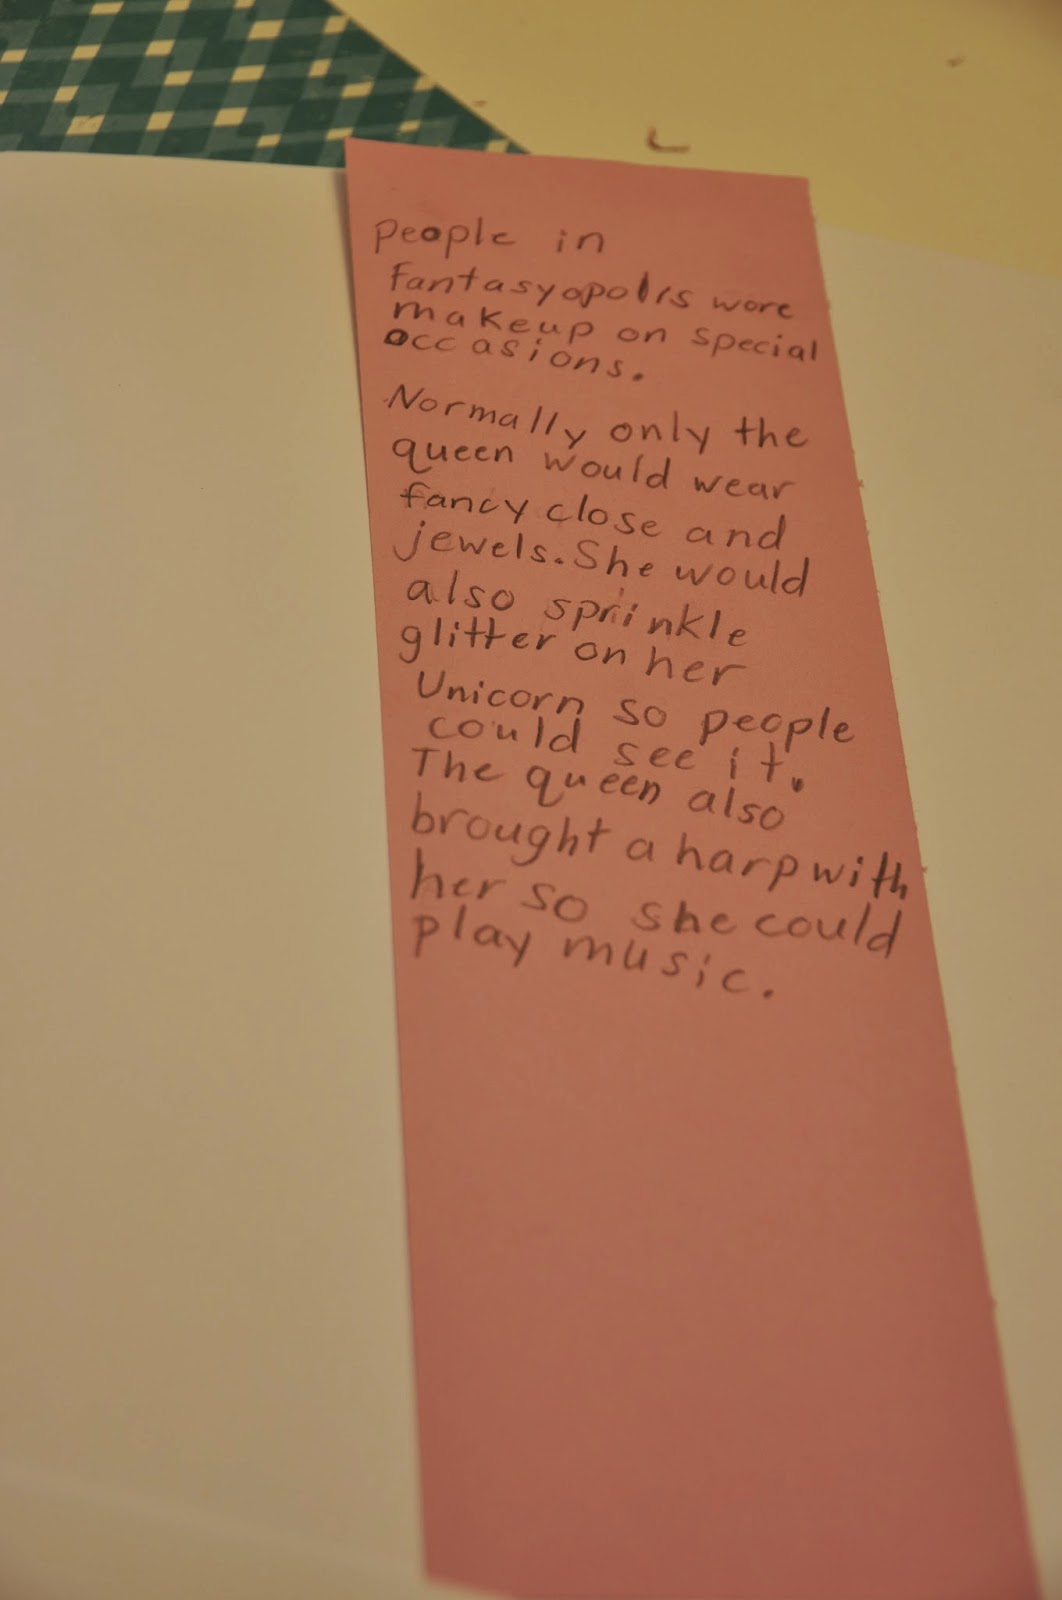 people in
fantasyopolis wore
makeup on special
occasions.
Normally only the
queen would wear
fancy close and
jewels. She would
also sprinkle
glitter on her
Unicorn so people
could see it.
The queen also
brought a harp with
her so she could
play music.